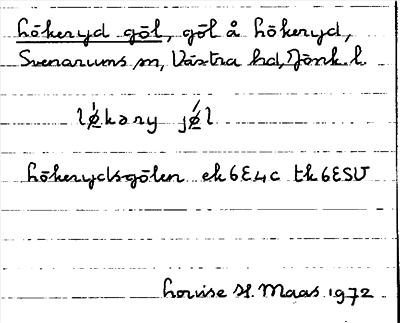 Lökeryd göl, göl å Lökeryd,
Svenarums sn, Västra hd, Jönk. l.
lø̀kəry jǿl
Lökerydsgölen ek 6E4c tk 6ESV
Lovise H. Maas 1972